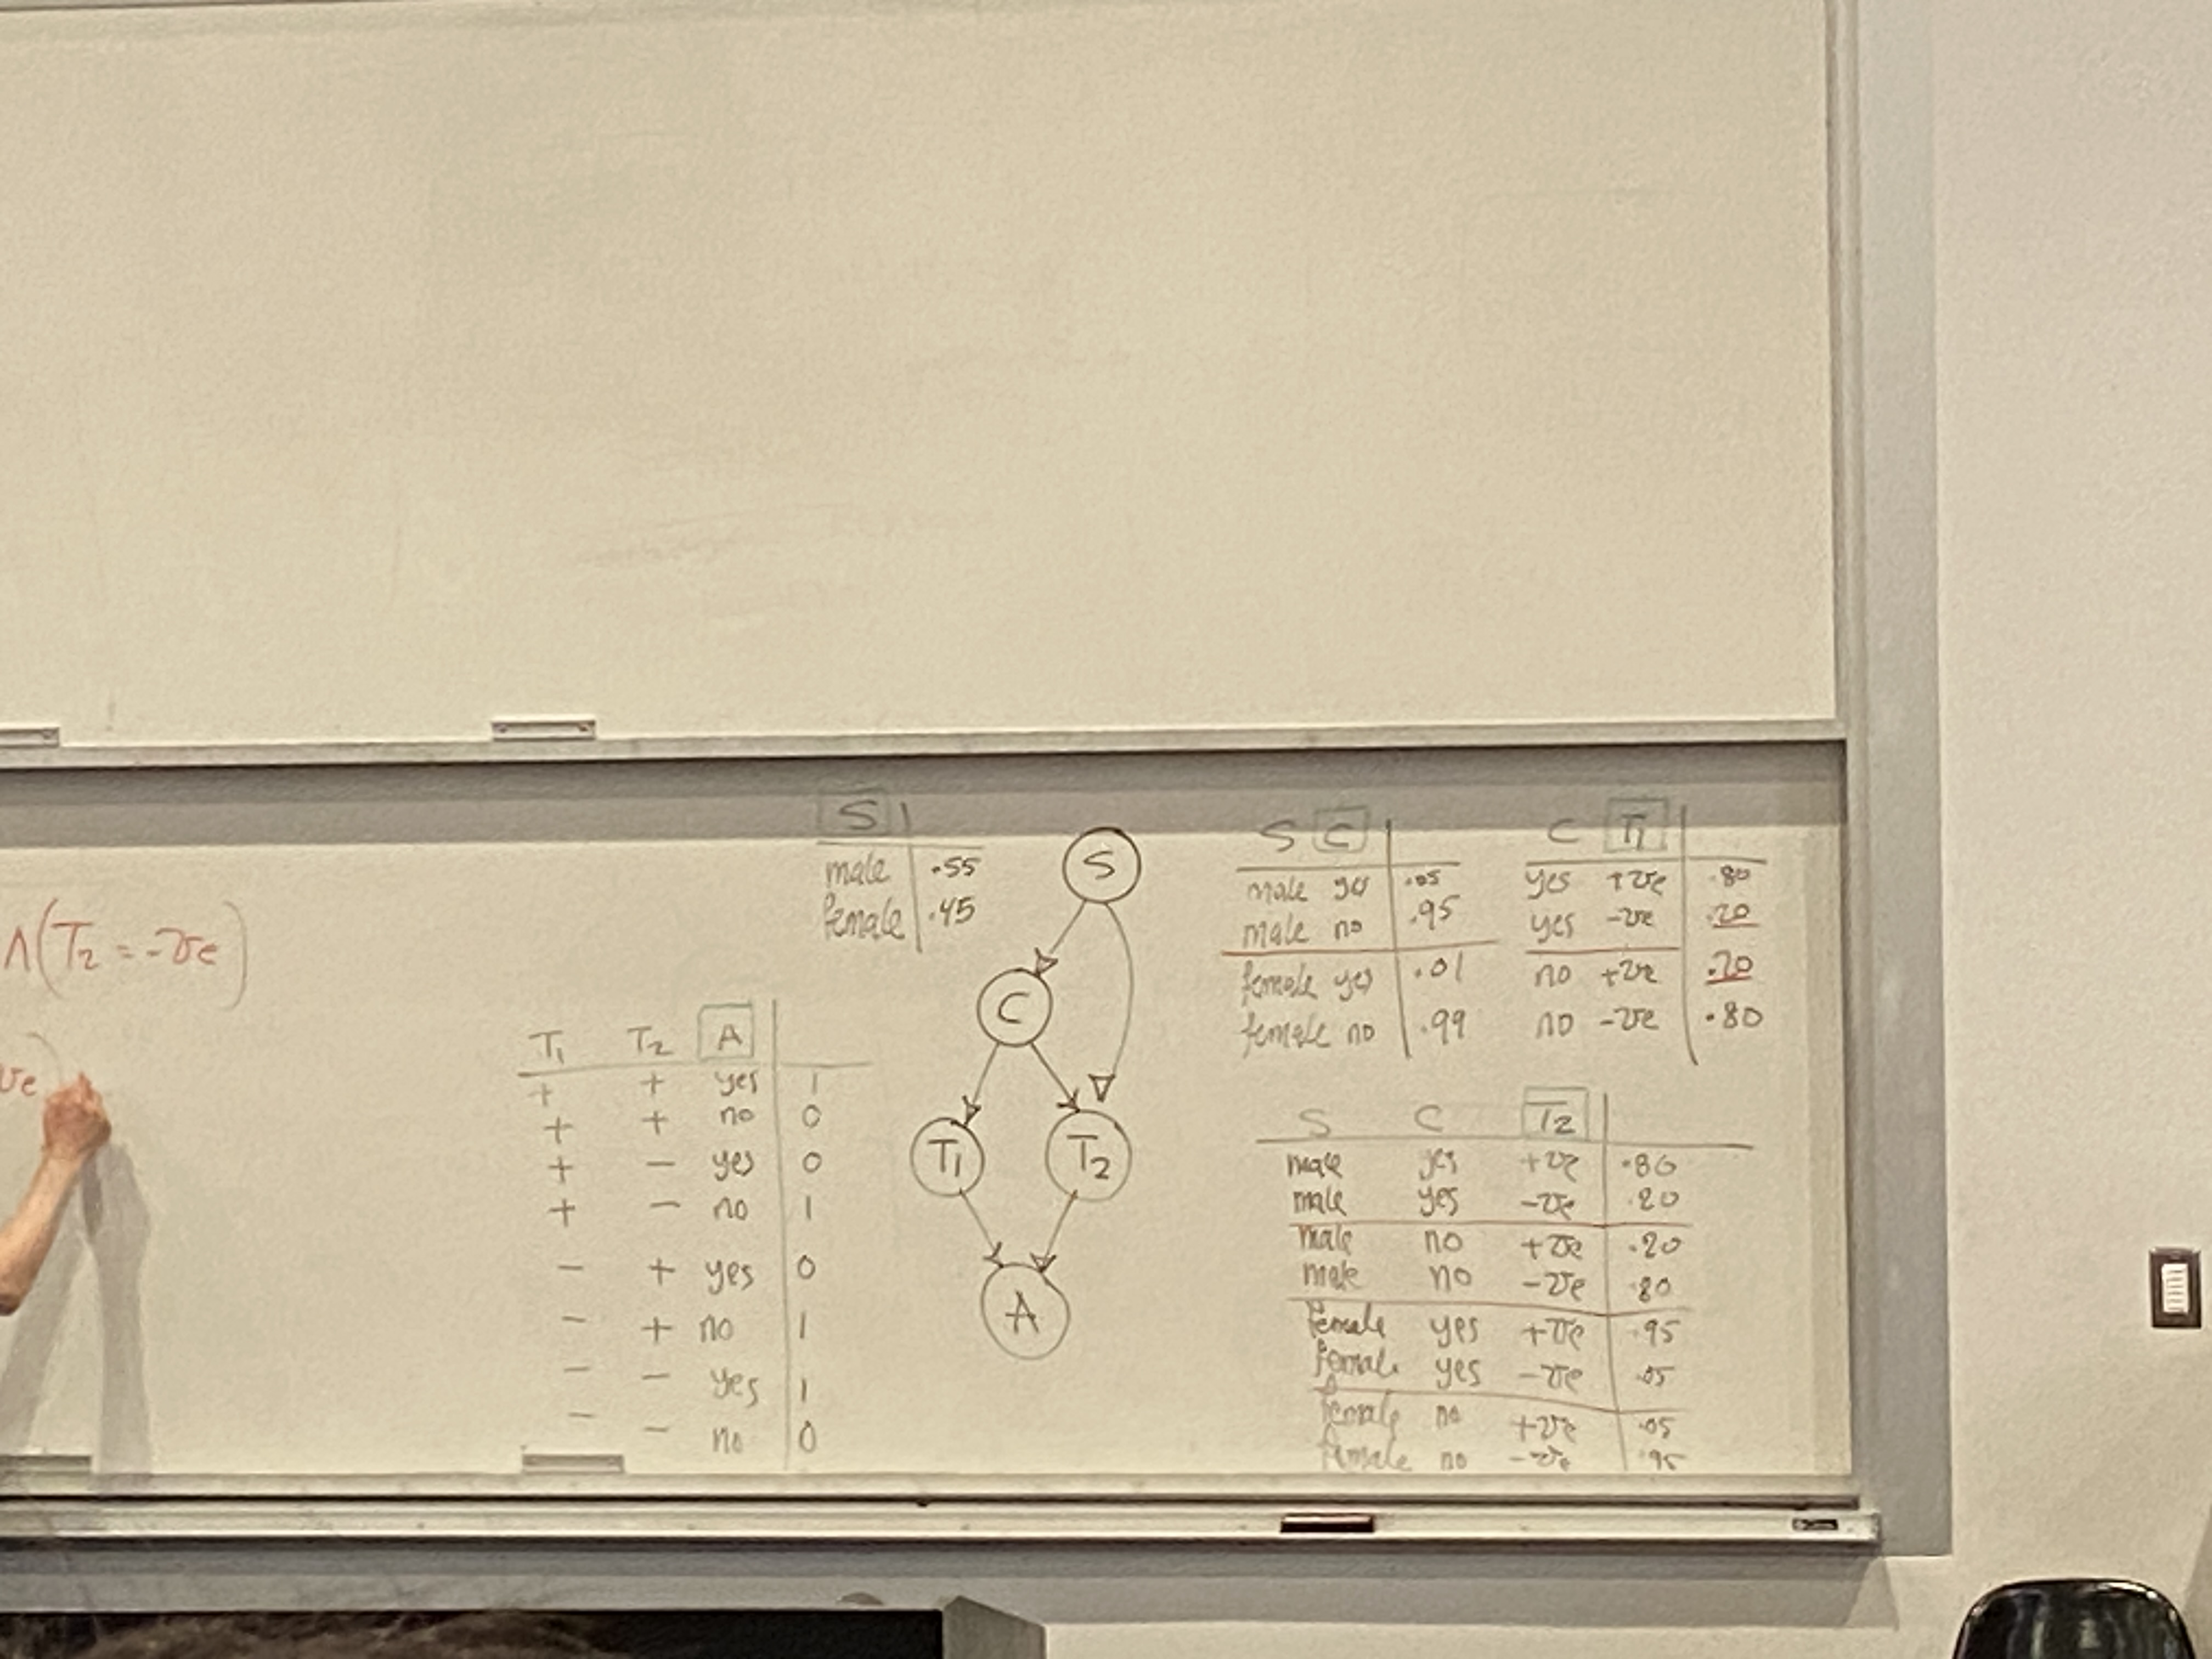 ∧(T₂ = -ve)
ve)
S
male .55
female .45
T₁ T₂ A
+ + yes 1
+ + no 0
+ - yes 0
+ - no 1
- + yes 0
- + no 1
- - yes 1
- - no 0
S
C
T₁ T₂
A
S C
male yes .05
male no .95
female yes .01
female no .99
C T₁
yes +ve .80
yes -ve .20
no +ve .20
no -ve .80
S C T₂
male yes +ve .80
male yes -ve .20
male no +ve .20
male no -ve .80
female yes +ve .95
female yes -ve .05
female no +ve .05
female no -ve .95